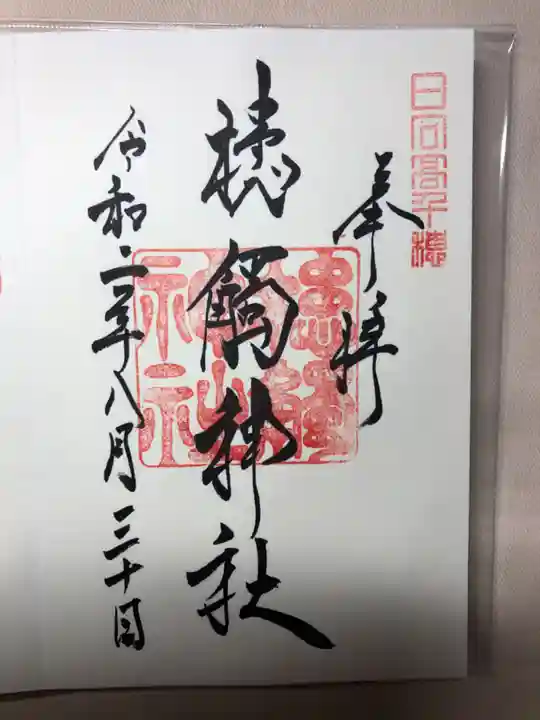 日向高千穂
奉拝
槵觸神社
令和二年八月三十日